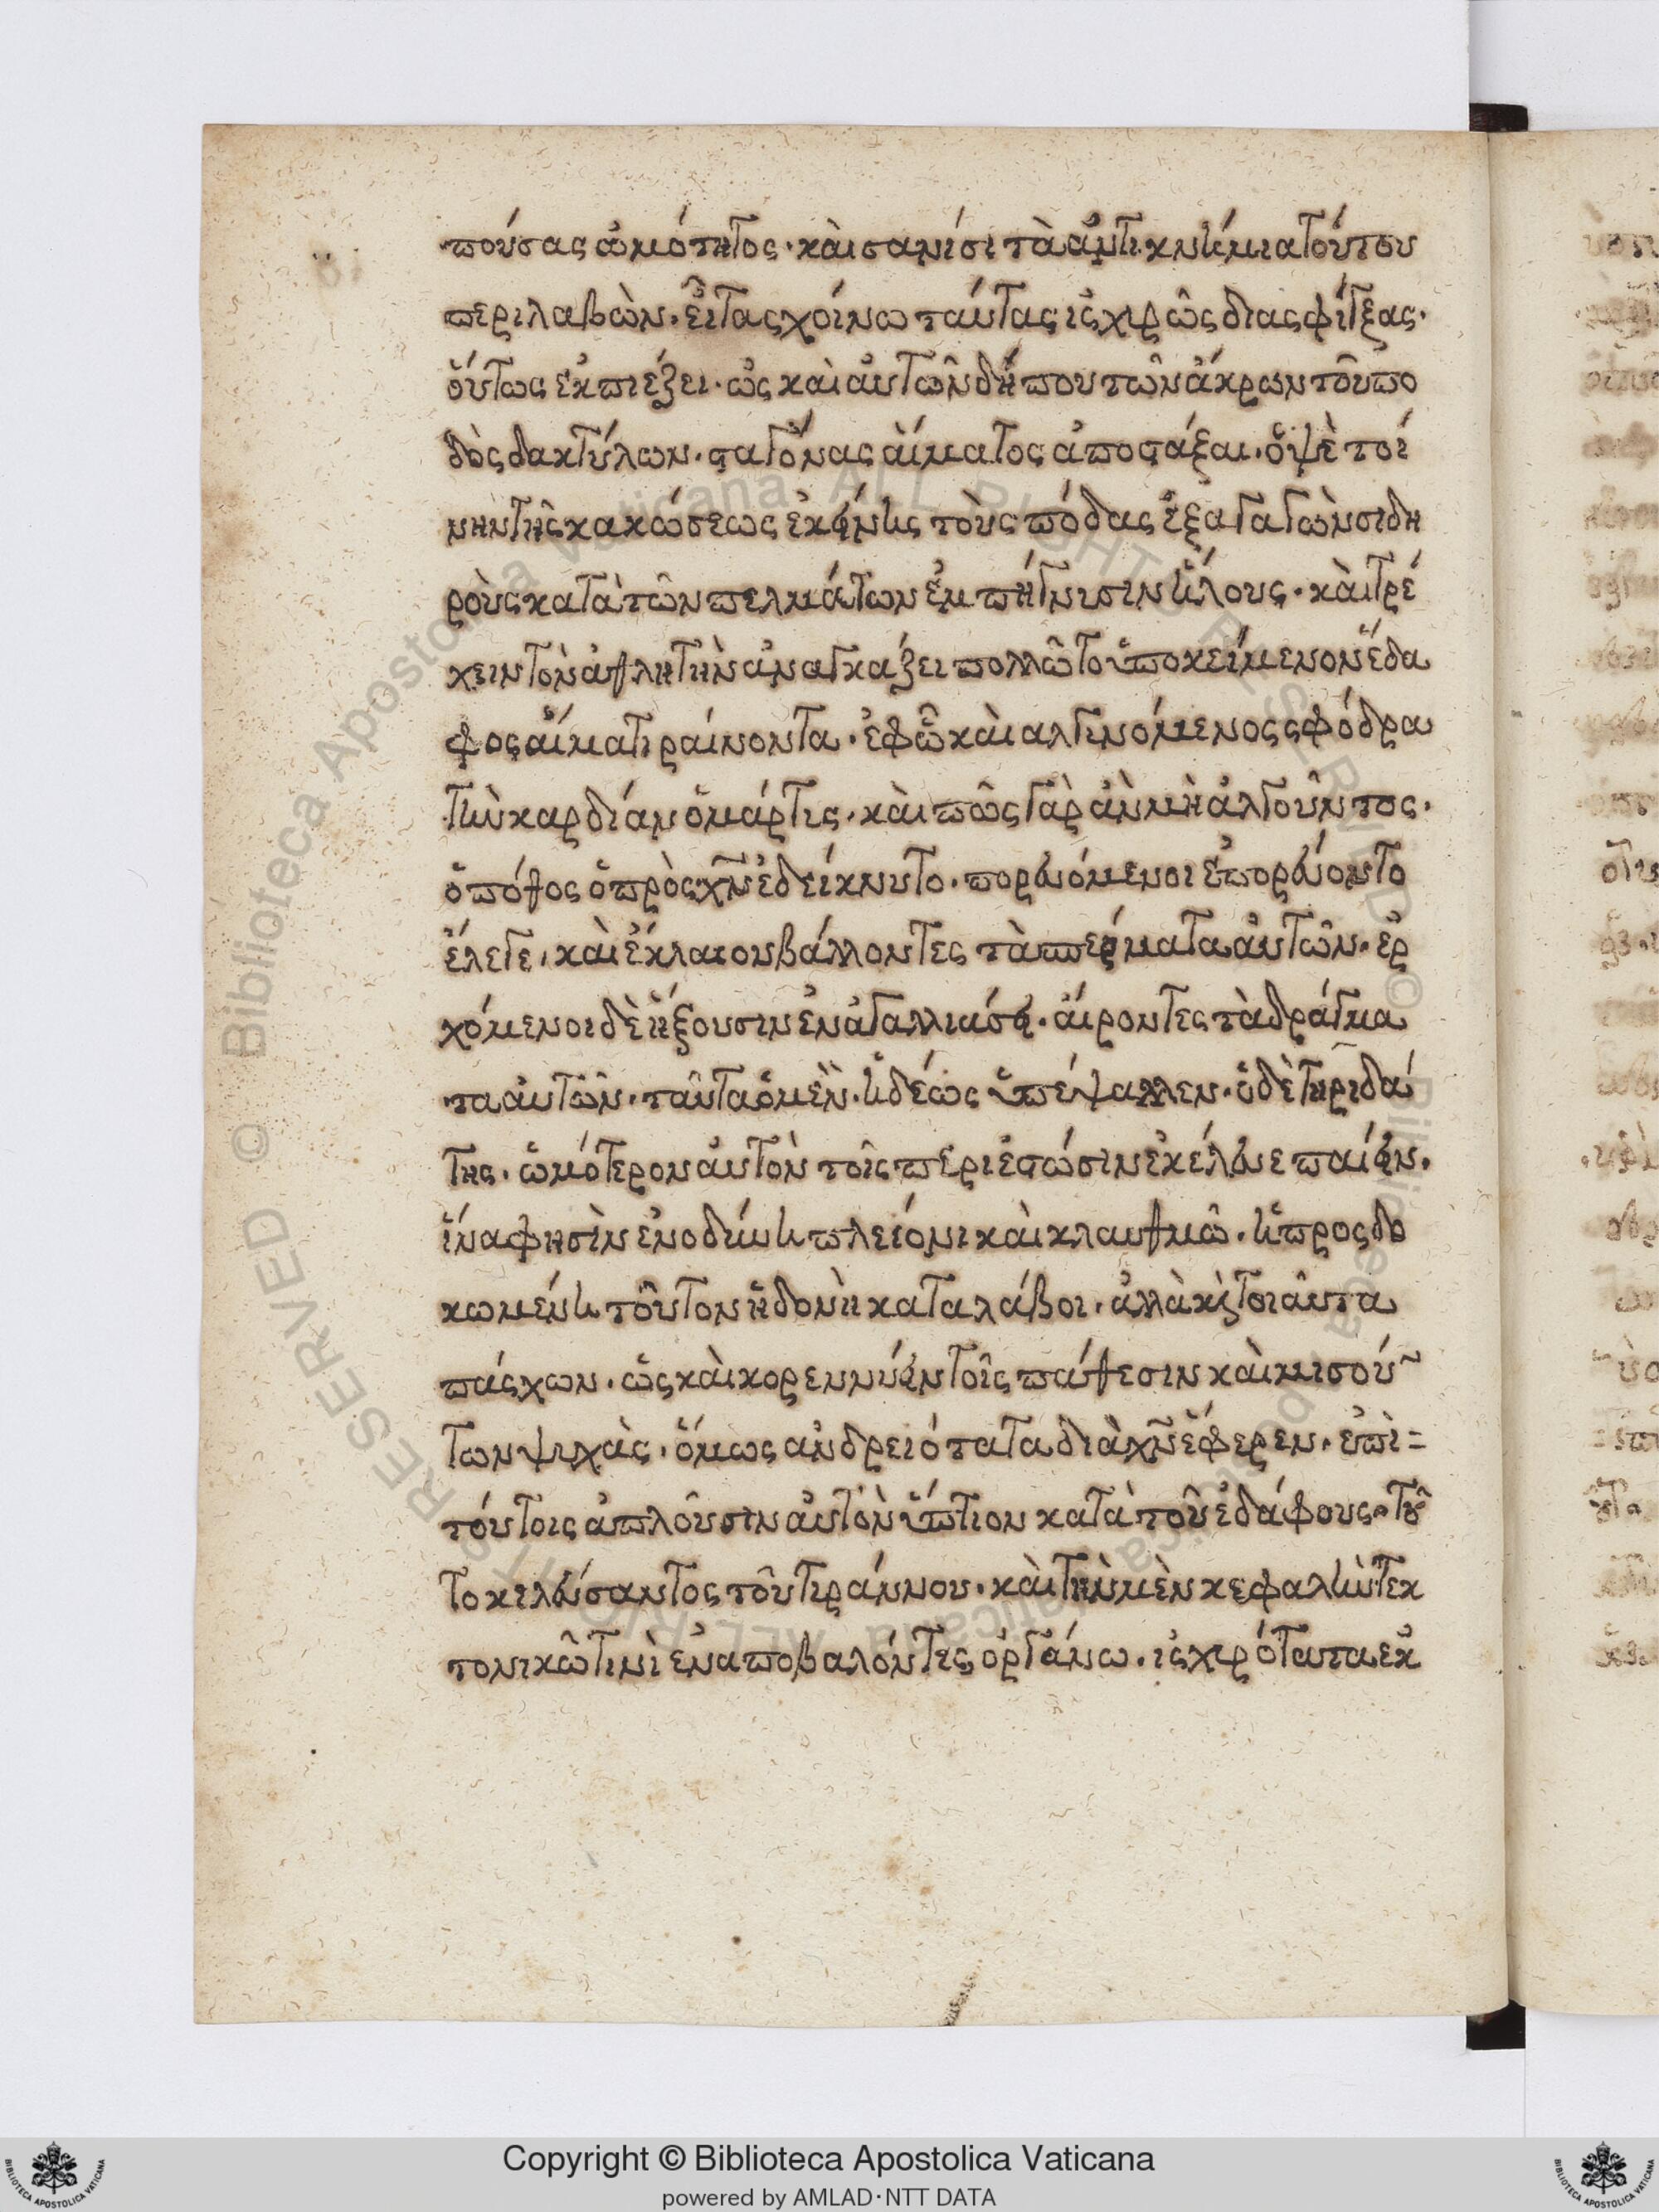 πούσας ὠμότητος· καὶ σανίσι τὰ ἀντικνήμια τούτου
περιλαβὼν· εἶτα σχοίνω ταύτας ἰσχυρῶς διασφίγξας·
οὕτως ἐκπιέζει· ὡς καὶ αὐτῶν δήπου τῶν ἄκρων τοῦ πο
δὸς δακτύλων· σταγόνας αἵματος ἀποστάξαι· ὀψὲ τοί
νυν τῆς κακώσεως ἐκείνης τοὺς πόδας ἐξαγαγὼν σιδη
ροὺς κατὰ τῶν πελμάτων ἐμπήγνυσιν ἥλους· καὶ τρέ
χειν τὸν ἀθλητὴν ἀναγκάζει πολλῶ τὸ ὑποκείμενον ἔδα
φος αἵματι ραίνοντα· ἐφῶ καὶ αλγυνόμενος σφόδρα
τὴν καρδίαν ὁ μάρτυς· καὶ πῶς γὰρ ἂν μὴ ἀλγοῦντος·
ὁ πόθος ὁ πρὸς χν ἐδείκνυτο· πορευόμενοι ἐπορεύοντο
ἔλεγε, καὶ ἔκλαιον βάλλοντες τὰ σπέρματα αὐτῶν· ἐρ
χόμενοι δὲ ἥξουσιν ἐν ἀγαλλιάσει· αἴροντες τὰ δράγμα
τα αὐτῶν· ταῦτα ὁ μὲν· ἡδέως ὑπέψαλλεν· ὁ δὲ τηριδά
της· ὠμότερον αὐτὸν τοῖς περιεστώσιν ἐκέλευε παίειν·
ἵνα φησὶν ἐν οδύνη πλείονι καὶ κλαυθμῶ· ἡ προσδο
κωμένη τοῦτον ἡδονὴ καταλάβοι· ἀλλὰ κ τοιαῦτα
πάσχων· ὡς καὶ κορεννύειν τοῖς πάθεσιν καὶ μισούν
των ψυχὰς· ὅμως ανδρειότατα διὰ χν ἔφερεν· ἐπὶ=
τούτοις ἁπλοῦσιν αὐτὸν ὕπτιον κατὰ τοῦ ἐδάφους· τοῦ
το κελεύσαντος τοῦ τυράννου· καὶ τὴν μὲν κεφαλὴν τεκ
τονικῶ τινὶ ἐναποβαλόντες ὀργάνω· ἰσχυρότατα εκ
Copyright © Biblioteca Apostolica Vaticana
powered by AMLAD·NTT DATA